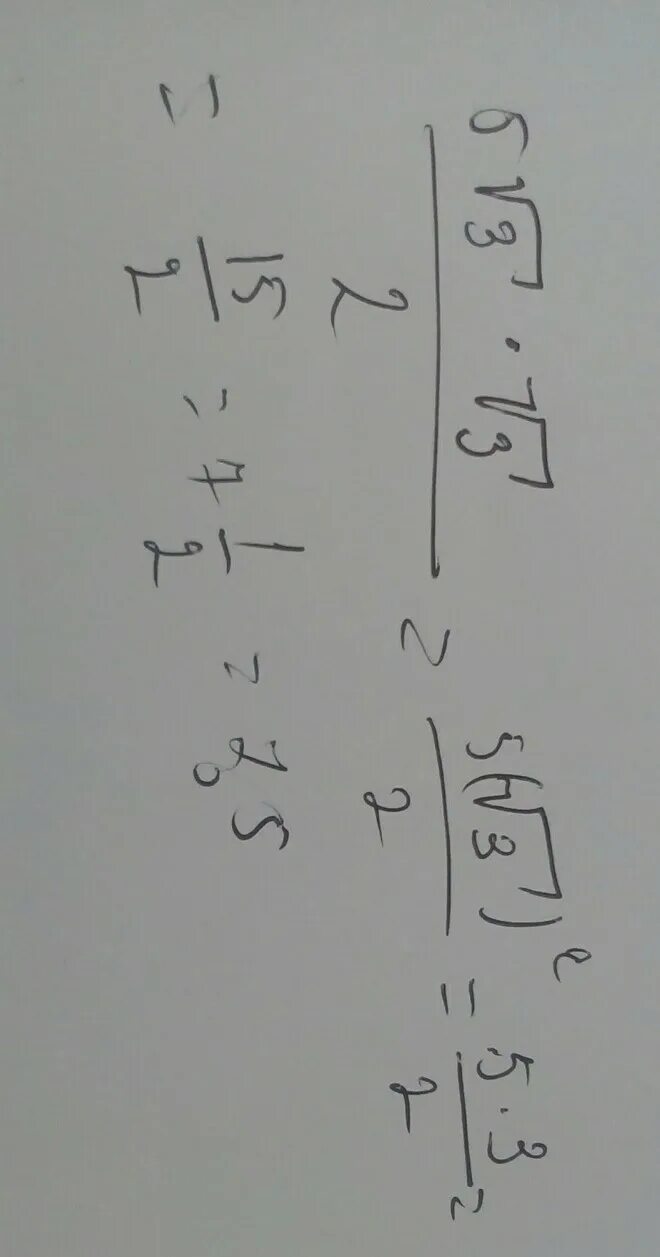 5√3 · √3 / 2 = 5(√3)² / 2 = 5·3 / 2 =
= 15/2 = 7 1/2 = 7,5